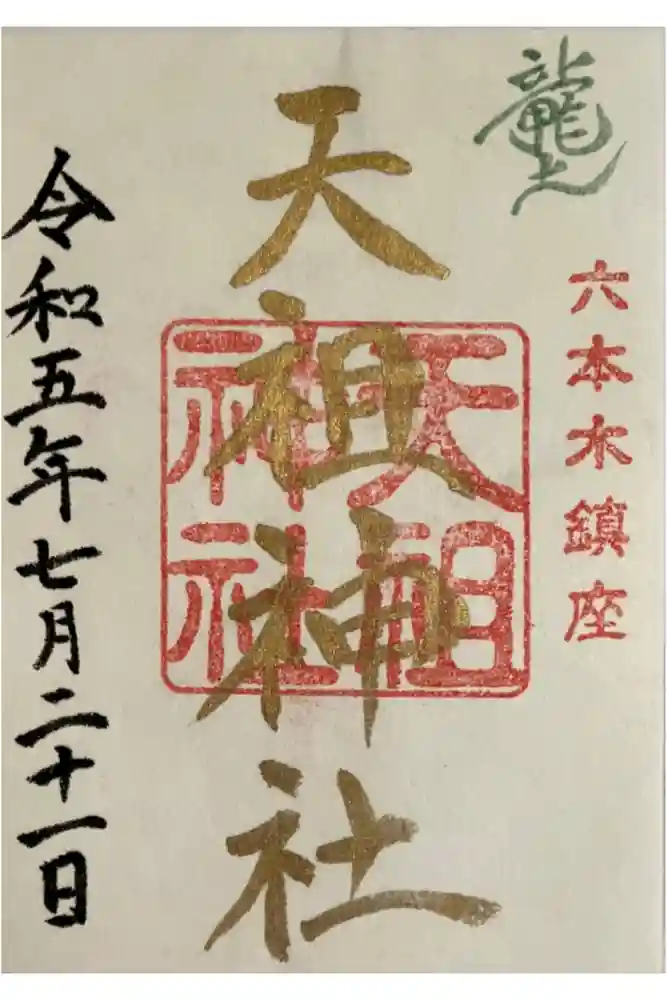 龍土
六本木鎮座
天祖神社
天祖
神社
令和五年七月二十一日